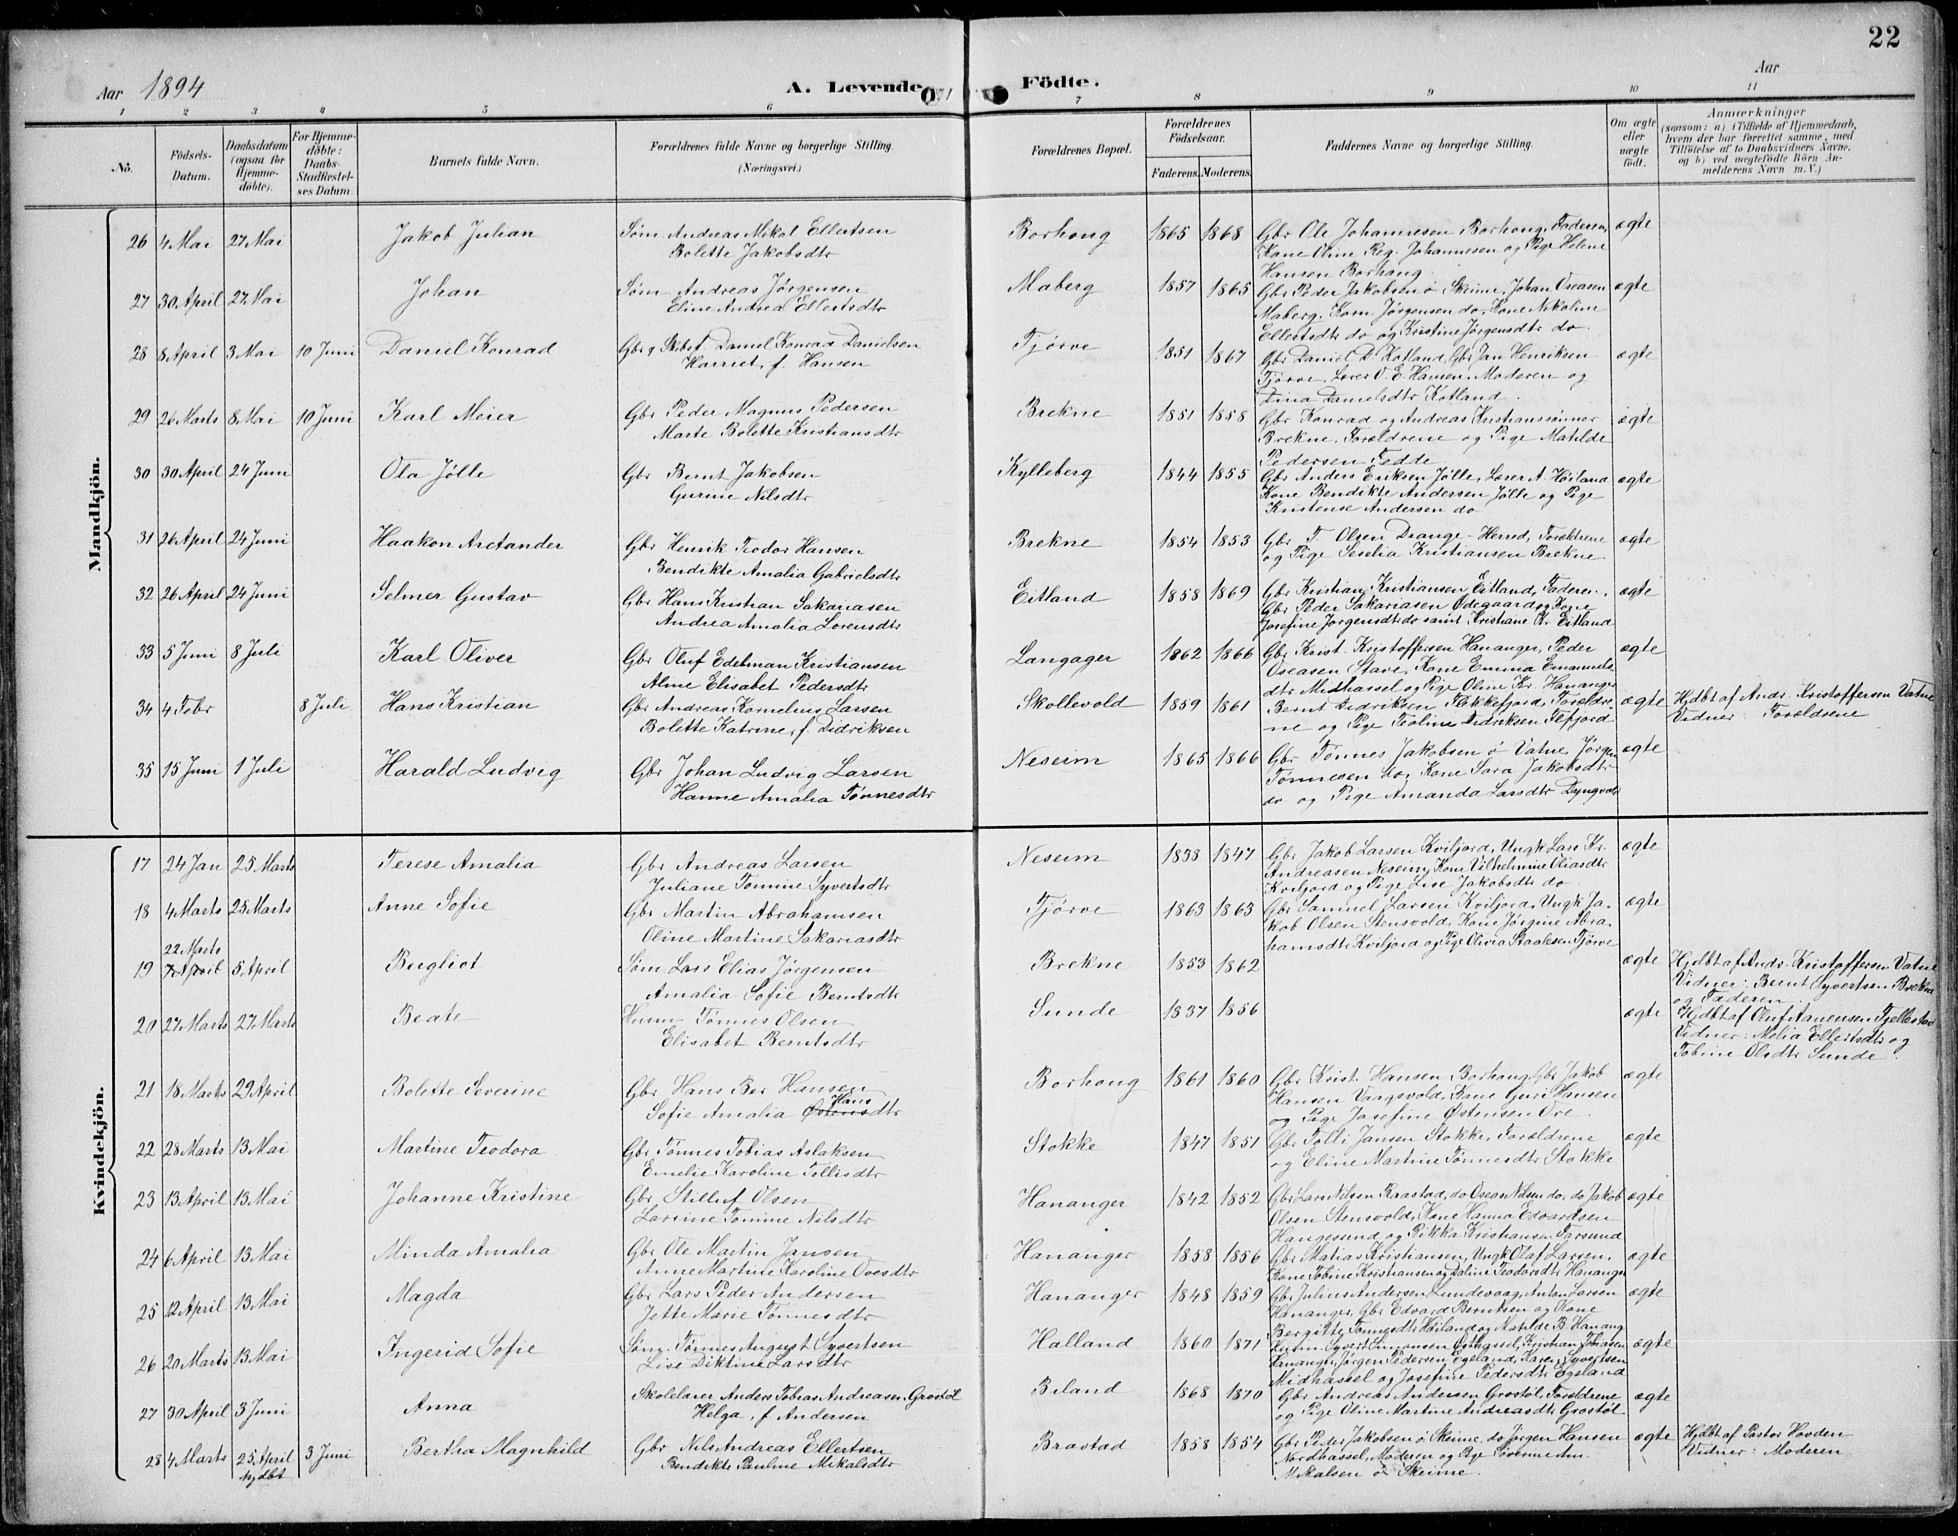 22
Aar 1894
A. Levende Födte.
Aar
1 2 3 4 5 6 7 8 9 10 11
No.
Födsels-Datum.
Daabsdatum (ogsaa for Hjemme-döbte).
For Hjemme-döbte: Daabs-Stadfæstel-ses Datum.
Barnets fulde Navn.
Forældrenes fulde Navne og borgerlige Stilling. (Næringsvei.)
Forældrenes Bopæl.
Forældrenes Födselsaar.
Faderens. Moderens.
Faddernes Navne og borgerlige Stilling.
Om ægte eller uægte födt.
Anmærkninger
(saasom: a) i Tilfælde af Hjemmedaab, hvem der har forrettet samme, med Tilföielse af to Daabsvidners Navne, og b) ved uægtefödte Börn An-melderens Navn m. V.)
Mandkjön.
26 4 Mai 27 Mai Jakob Julian Søm Andreas Nikol Ellertsen Borhong 1865 1868 Gbr Ole Johannesen Borhong, Faderen, ægte
Bolette Jakobsdtr Kone Oline Reg. Johannesen og Pige Helene
Hansen Borhong
27 30 April 27 Mai Johan Søm Andreas Jørgensen Maberg 1857 1865 Gbr Peder Jakobsen ø Skeime, Johan Oseasen ægte
Eline Andrea Ellertsdtr Maberg, Korn. Jørgensen do, Kone Nikoline
Ellertsdtr do og Kristine Jørgensdtr do.
28 8 April 3 Mai 10 Juni Daniel Konrad Gbr og Skibst Daniel Konrad Danielsen Tjørve 1851 1867 Gbr Daniel D. Kotland, Gbr Jan Henriksen ægte
Harriet, f. Hansen Tjørve, Lærer O. E. Hansen, Moderen og
Dina Danielsdtr Kotland.
29 26 Marts 8 Mai 10 Juni Karl Meier Gbr Peder Magnus Pedersen Brekne 1851 1858 Gbr Konrad og Andreas Kristianssønner ægte
Marte Bolette Kristiansdtr Brekne, Forældrene og Pige Matilde
Pedersen Fedde
30 30 April 24 Juni Ola Jølle Gbr Bernt Jakobsen Kylleberg 1844 1855 Gbr Anders Eriksen Jølle, Lærer A. Høiland ægte
Gurine Nilsdtr Kone Bendikte Andersen Jølle og Pige
Kristense Andersen do
31 26 April 24 Juni Haakon Aretander Gbr Henrik Teodor Hansen Brekne 1854 1853 Gbr T. Olsen Drange - Herred, Forældrene ægte
Bendikte Amalia Gabrielsdtr og Pige Seselia Kristiansen Brekne
32 26 April 24 Juni Selmer Gustav Gbr Hans Kristian Sakariasen Eitland 1858 1869 Gbr Kristian Kristiansen Eitland, Faderen, ægte
Andrea Amalia Lorensdtr Gbr Peder Sakariasen Ødegaard og Kone
Josefine Jørgensdtr do samt Kristiane K. Eitland
33 5 Juni 8 Juli Karl Oliver Gbr Oluf Edelman Kristiansen Langager 1862 1866 Gbr Krist. Kristoffersen Hananger, Peder ægte
Alme Elisabet Pedersdtr Oseasen Stave, Kone Emma Emanuels
dtr Midhassel og Pige Oline Kr. Hananger
34 4 Febr 8 Juli Hans Kristian Gbr Andreas Kornelius Larsen Skollevold 1859 1861 Bernt Didriksen Flekkefjord, Forældre- ægte Hjdbt af Andr. Kristoffersen Vatne
Bolette Katrine, f. Didriksen ne og Pige Teoline Didriksen Flefjord Vidner: Forældrene
35 15 Juni 1 Juli Harald Ludvig Gbr Johan Ludvig Larsen Neseim 1865 1866 Gbr Tønnes Jakobsen ø Vatne, Jørgen ægte
Hanne Amalia Tønnesdtr Tønnesen do, Kone Sara Jakobsdtr
do og Pige Amanda Larsdtr Dyngvold
Kvindekjön.
17 24 Jan 25 Marts Terese Amalia Gbr Andreas Larsen Neseim 1838 1847 Gbr Jakob Larsen Kviljord, Ungk Lars Kr. ægte
Juliane Tomine Syvertsdtr Andreasen Neseim, Kone Vilhelmine Oliasdtr
Kviljord og Pige Lise Jakobsdtr do
18 4 Marts 25 Marts Anne Sofie Gbr Martin Abrahamsen Tjørve 1863 1863 Gbr Samuel Larsen Kviljord, Ungk Ja- ægte
Oline Martine Sakariasdtr kob Olsen Stensvold, Kone Jørgine Abra-
hamsdtr Kviljord og Pige Olivia Staalesen Tjørve
22 Marts
19 April 5 April Bugliot Søm Lars Elias Jørgensen Brekne 1853 1862 ægte Hjdbt af Andr. Kristoffersen Vatne
Amalia Sofie Berntsdtr Vidner: Bernt Syvertsen Brekne
og Faderen
20 27 Marts 27 Marts Beate Husm Tønnes Olsen Sunde 1837 1856 ægte Hjdbt af Oluf Aanensen Fjellestad
Elisabet Berntsdtr Vidner: Melia Ellertsdtr og
Tobine Olsdtr Sunde.
21 18 Marts 29 April Bolette Severine Gbr Hans Ber Hansen Borhong 1861 1860 Gbr Krist. Hansen Borhong, Gbr Jakob ægte
Sofie Amalia Hansdtr Hansen Vaagsvold, Kone Guri Hansen
og Pige Josefine Østensen Ore.
22 28 Marts 13 Mai Martine Teodora Gbr Tønnes Tobias Aslaksen Stokke 1847 1851 Gbr Tolli Jansen Stokke, Forældrene ægte
Emelie Karoline Tollisdtr og Eline Martine Tønnesdtr Stokke
23 13 April 13 Mai Johanne Kristine Gbr Stilluf Olsen Hananger 1842 1852 Gbr Lars Nilsen Raastad, do Oseas Nilsen do, do Jakob ægte
Larsine Tomine Nilsdtr Olsen Stensvold, Kone Hanna Edvardsen
Haugesund og Rikka Kristiansen Farsund
24 6 April 13 Mai Minda Amalia Gbr Ole Martin Jansen Hananger 1858 1856 Gbr Matias Kristiansen, Ungk Olaf Larsen, ægte
Anne Martine Karoline Ovesdtr Kone Tobine Kristiansen og Taline Teodorsdtr Hananger
25 12 April 13 Mai Magda Gbr Lars Peder Andersen Hananger 1848 1859 Gbr Julius Andersen Lundevaag, Anton Larsen ægte
Jotte Marie Tønnesdtr Hananger, Gbr Edvard Berntsen og Kone
Bergitte Tønnesdtr Høiland og Matilde B. Hanang
26 20 Marts 13 Mai Ingerid Sofie Søm Tønnes August Syvertsen Halland 1860 1871 Husm Syvert Simonsen Østhassel, Kristian Tobiasen ægte
Lise Diktine Larsdtr Hananger, Jørgen Pedersen Egeland, Karen Syvertsen
Midhassel og Josefine Pedersdtr Egeland
27 30 April 3 Juni Anna Skolelærer Anders Tobias Andreasen Grostøl Beland 1868 1870 Gbr Andreas Andersen Grostøl Forældrene ægte
Helga, f. Andersen og Pige Oline Martine Andreasdtr Grostøl
28 4 Marts 25 April 3 Juni Bertha Magnhild Gbr Nils Andreas Ellertsen Brastad 1858 1854 Gbr Peder Jakobsen ø Skeime, do Jørgen Hansen ægte Hjdbt af Pastor Hovden
hjdbt Bendikte Pauline Mikalsdtr Nordhassel, Moderen og Pige Severine An. Vidner: Moderen
Mikalsen ø Skeime.